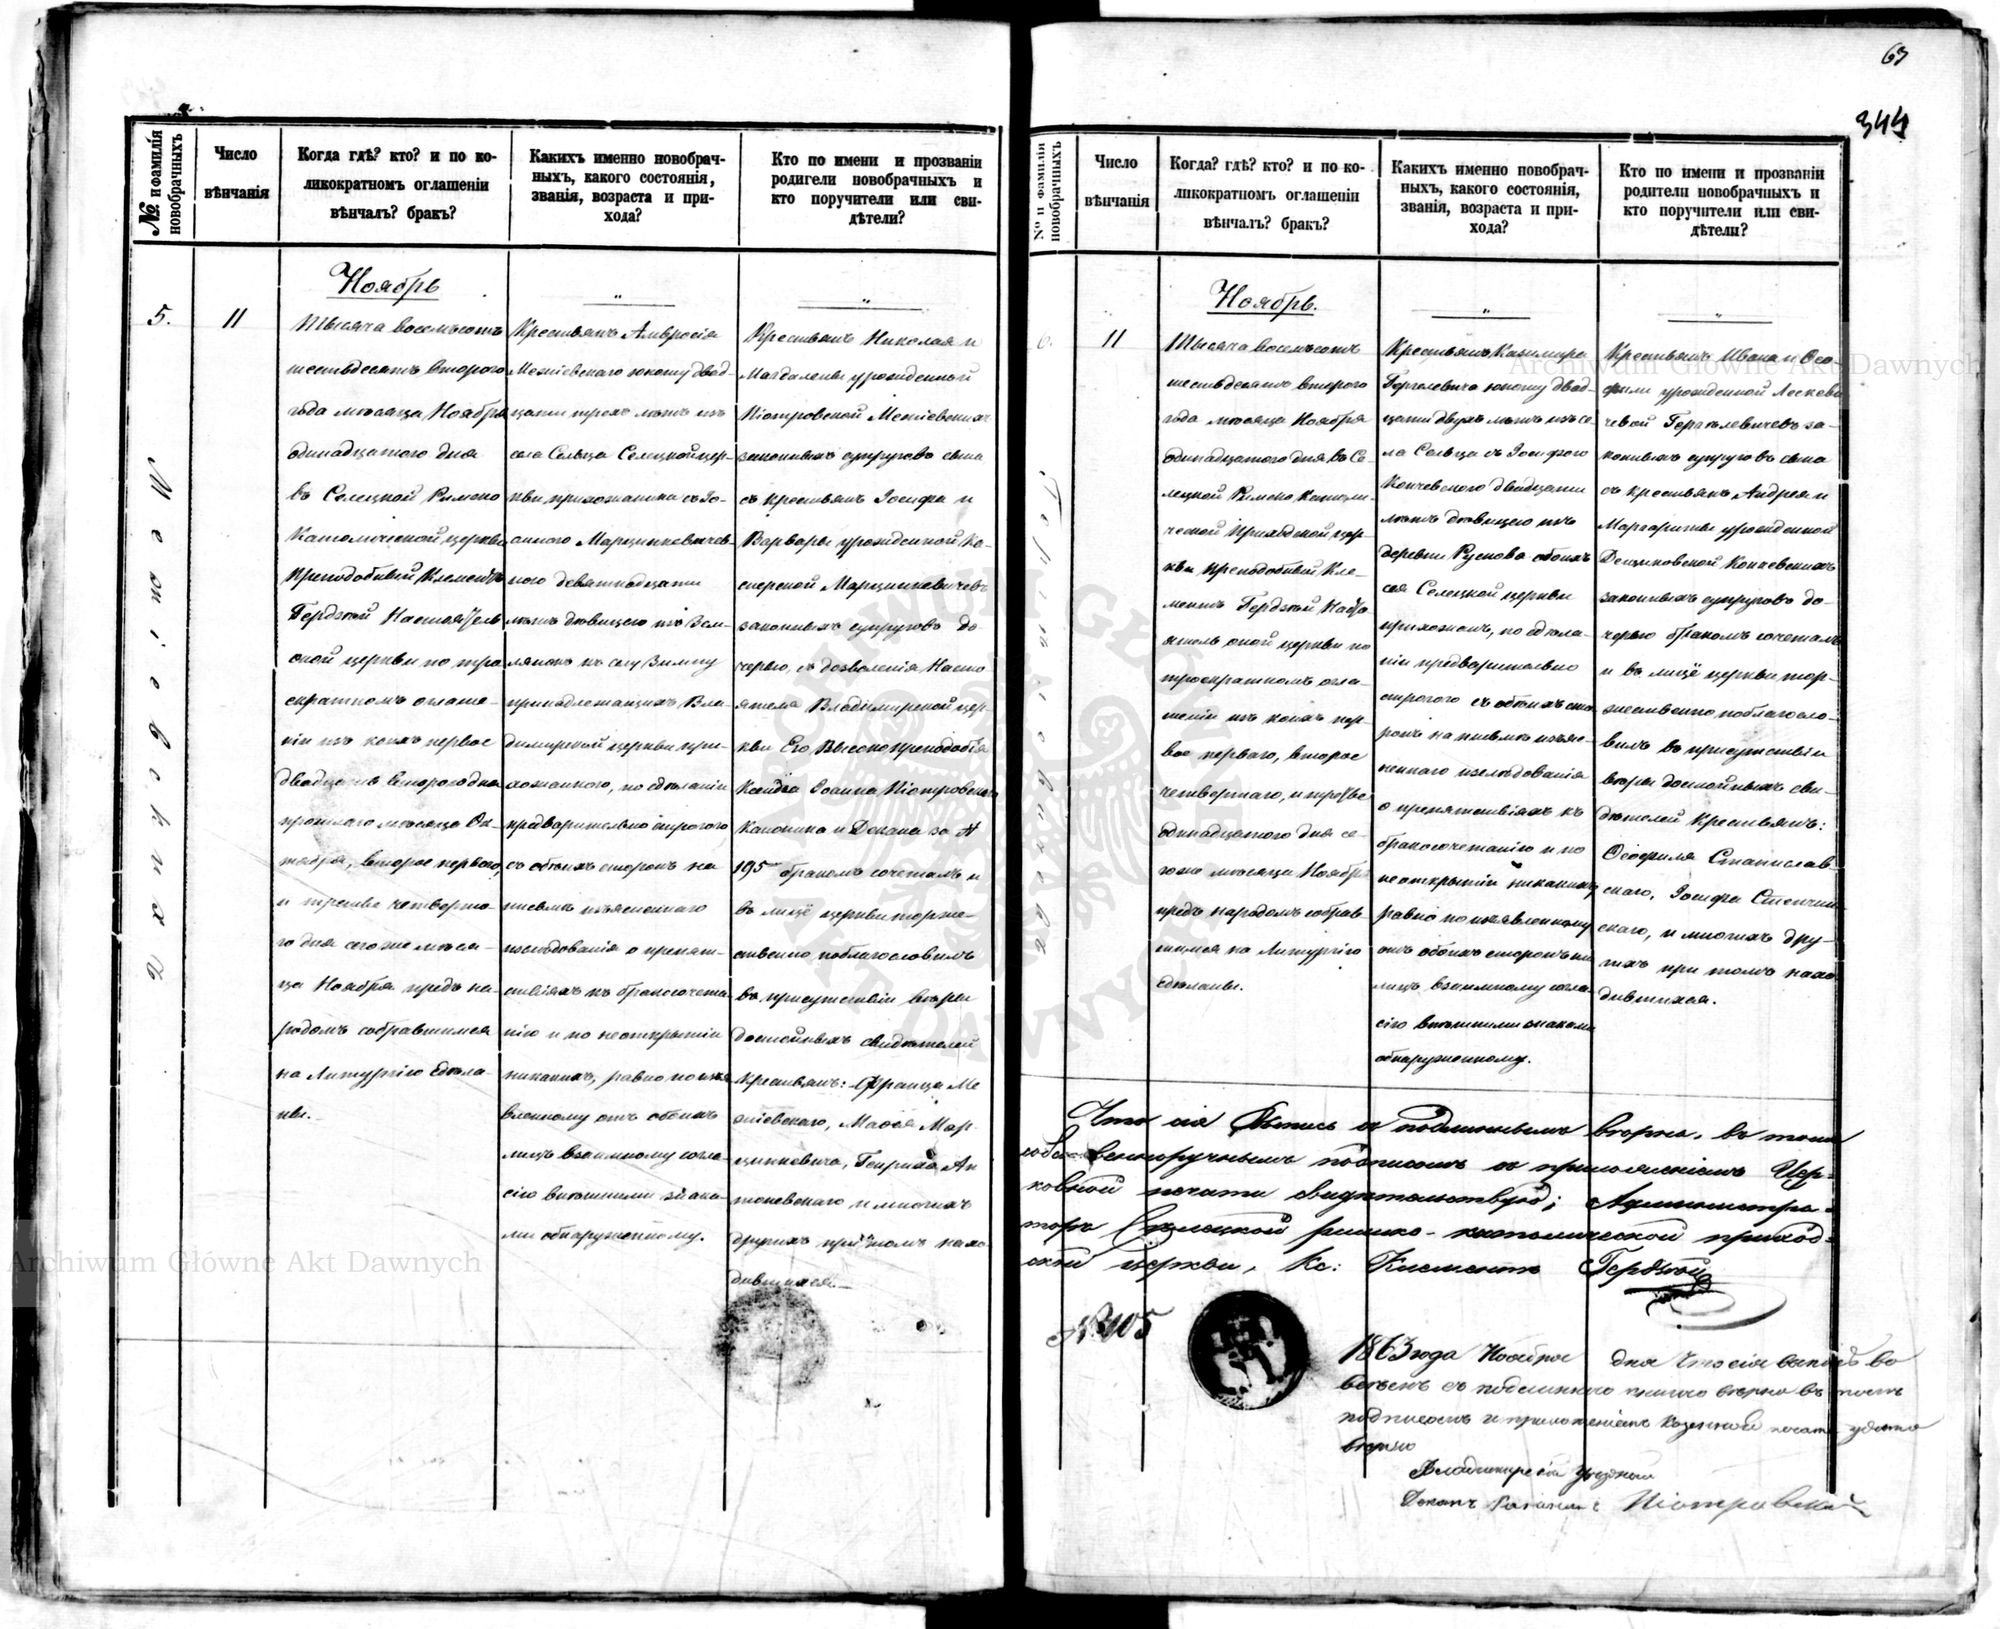 63
344
№ и фамилія новобрачныхъ
Число вѣнчанія
Когда гдѣ? кто? и по ко-
ликократномъ оглашеніи
вѣнчалъ? бракъ?
Каихъ именно новобрач-
ныхъ, какого состоянія,
званія, возраста и при-
хода?
Кто по имени и прозванію
родители новобрачныхъ и
кто поручители или сви-
дѣтели?
5.
11
Ноябрь
Тысяча восемьсотъ
шестьдесятъ втораго
года мѣсяца Ноября
одинадцатого дня
въ Селецкой Римско
Католической церкви
Преподобный Клементъ
Гердзкой Настоятель
оной церкви по тро
екратномъ оглаше-
ніи изъ коихъ первое
двадцать второго дня
прошлаго мѣсяца Ок-
тября, второе первого,
и третье четверто-
го дня сего же мѣся-
ца Ноября предъ на-
родомъ собравшимся
на Литургію сдѣла-
ны.
"
Крестьянъ Амвросія
Межіевскаго юношу двад-
цати трехъ лѣтъ изъ
села Сельца Селецкой цер-
кви прихожанина съ Іо-
анною Марцинкевичев-
ною девятнадцати
лѣтъ дѣвицею изъ Зем-
лянокъ къ селу Зимну
принадлежащихъ Вла-
димирской церкви при-
хожанкою, по сдѣланіи
предварительно строгого
съ обоихъ сторонъ на
письмѣ изъясненнаго
изслѣдованія о препят-
ствіяхъ къ бракосочета-
нію и по неоткрытіи
никакихъ, равно по изъя
вленному отъ обоихъ
лицъ взаимному согла-
сію внѣшними знака-
ми обнаруженному.
"
Крестьянъ Николая и
Магдалены урожденной
Піотровской Межіевскихъ
законныхъ супруговъ сына
съ крестьянъ Іосифа и
Варвары урожденной Ка-
сперской Марцинкевичевъ
законныхъ супруговъ до-
черью, съ дозволенія Насто
ятеля Владимирской цер-
кви Его Высокопреподобія
Ксендза Іоанна Піотровскаго
Каноника и Декана за №
195 бракомъ сочеталъ и
въ лицѣ церкви торже-
ственно поблагословилъ
въ присутствіи вѣры
достойныхъ свидѣтелей
крестьянъ: Франца Ме
жіевскаго, Маѳея Мар
цинкевича, Генриха Ан
тоневскаго и многихъ
другихъ при томъ нахо
дившихся.
№ и фамилія новобрачныхъ
Число вѣнчанія
Когда? гдѣ? кто? и по ко-
ликократномъ оглашеніи
вѣнчалъ? бракъ?
Какихъ именно новобрач-
ныхъ, какого состоянія,
званія, возраста и при-
хода?
Кто по имени и прозванію
родители новобрачныхъ и
кто поручители или сви-
дѣтели?
6.
11
Ноябрь.
Тысяча восемьсотъ
шестьдесятъ втораго
года мѣсяца Ноября
одинадцатого дня въ Се-
лецкой Римско Католи-
ческой Приходской цер-
кви Преподобный Кле-
ментъ Гердзкой Насто
ятель оной церкви по
троекратномъ огла-
шеніи изъ коихъ пер-
вое перваго, второе
четвертаго, и третье
одинадцатого дня се-
го же мѣсяца Ноября
предъ народомъ собрав-
шимся на Литургію
сдѣланы.
"
Крестьянъ Казимира
юношу двад-
цати двухъ лѣтъ изъ се-
ла Сельца съ Іосифою
Кончевскою двадцати
лѣтъ дѣвицею изъ
деревни Руснова обоихъ
сея Селецкой церкви
прихожанъ, по сдѣла-
ніи предварительно
строгого съ обоихъ сто
ронъ на письмѣ изъяс-
неннаго изслѣдованія
о препятствіяхъ къ
бракосочетанію и по
неоткрытіи никакихъ
равно по изъявленному
отъ обоихъ сторонъ
лицъ взаимному согла-
сію внѣшними знаками
обнаруженному.
"
Крестьянъ Ивана и Ѳео-
фили урожденной
за-
конныхъ супруговъ сына
съ крестьянъ Андрея и
Маргариты урожденной
Кончевскихъ
законныхъ супруговъ до-
черью бракомъ сочеталъ
и въ лицѣ церкви тор-
жественно поблагосло-
вилъ въ присутствіи
вѣры достойныхъ сви-
дѣтелей крестьянъ:
Ѳеофиля Станислав-
скаго, Іосифа
скаго, и многихъ дру-
гихъ при томъ нахо-
дившихся.
Что сія съ подлинникомъ вѣрна, въ томъ
собственноручнымъ подписомъ съ приложеніемъ Цер-
ковной печати свидѣтельствую; Администра-
торъ Селецкой римско-католической приход-
ской церкви, Кс: Климентъ Гердзкой
№ 405
1863 года Ноября дня Что сія во
всемъ съ подлинною книгою вѣрна въ томъ
подписомъ и приложеніемъ казенной печати удосто
вѣряю
Владимирскій Уѣздный
Деканъ Каноникъ Піотровскій
Archiwum Główne Akt Dawnych
Archiwum Główne Akt Dawnych
ARCHIWUM GŁÓWNE AKT DAWNYCH